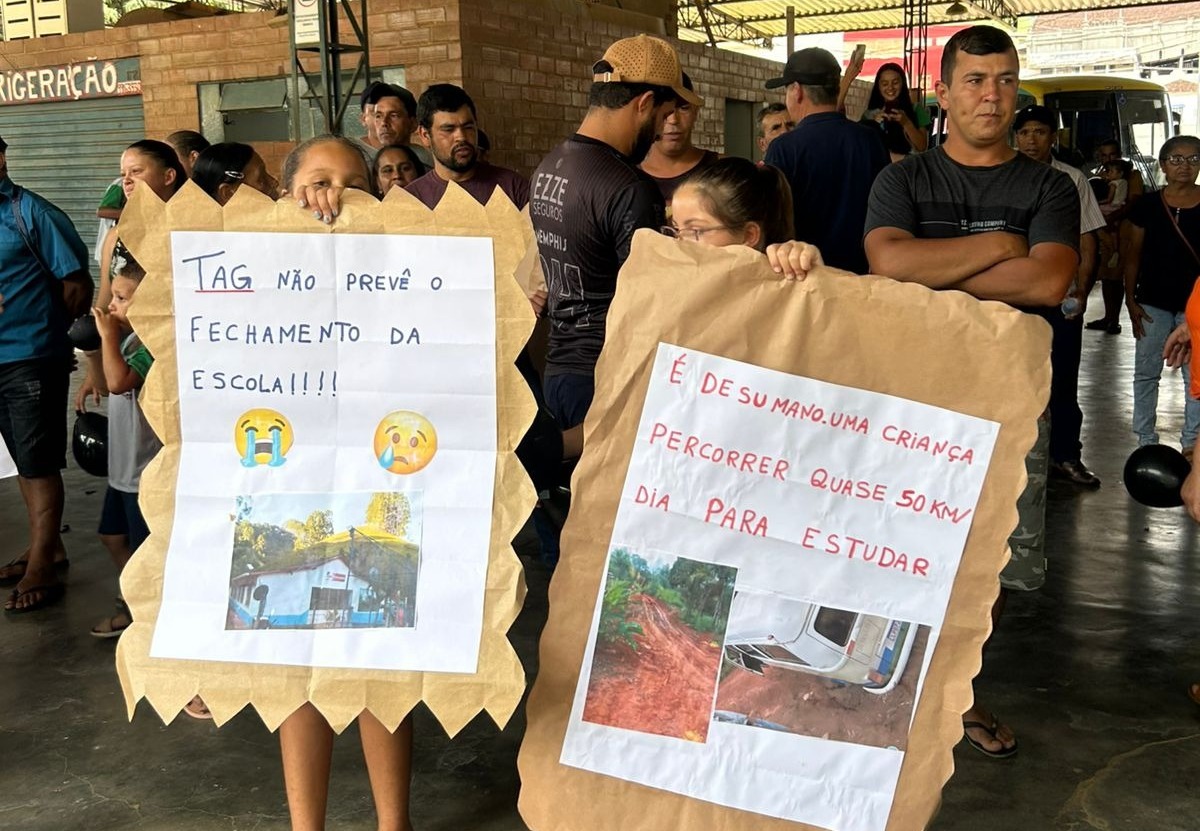 RIGERAÇÃO
EZZE
SEGUROS
MEMPHIS
TAG NÃO PREVÊ O
FECHAMENTO DA
ESCOLA!!!!
É DESUMANO.UMA CRIANÇA
PERCORRER QUASE 50 KM/
DIA PARA ESTUDAR